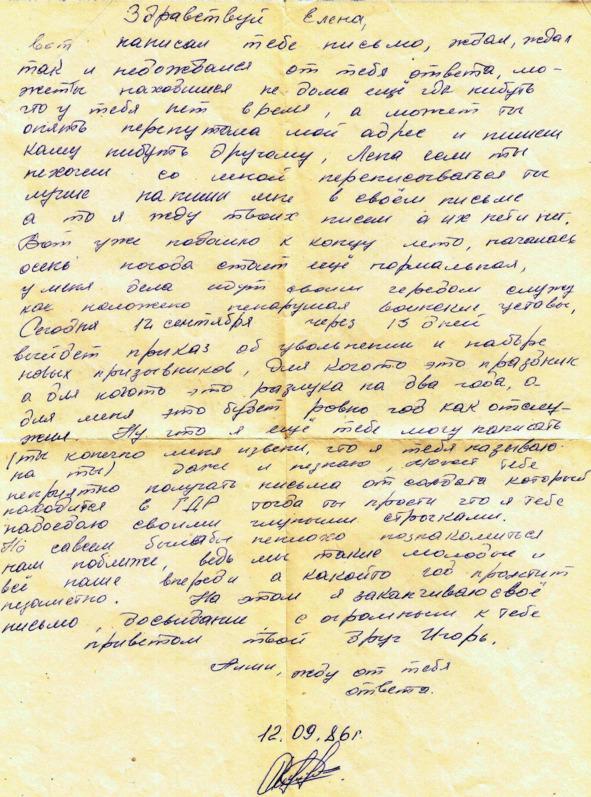 Здравствуй Елена,
вот написал тебе письмо, ждал, ждал
так и недождался от тебя ответа, мо-
жеты находишся не дома ещё где нибуть
что у тебя нет время, а может ты
опять перепутала мой адрес и пишеш
кому нибуть другому, Лена если ты
нехочеш со мной переписоваться ты
лучше напиши мне в своём письме
а то я жду твоих писем а их нет и нет.
Вот уже подошло к концу лето, началась
осень погода стоит ещё нормальная,
у меня дела идут своим чередом служу
как положено ненарушая воинские уставы.
Сегодня 12 сентября через 15 дней
выйдет приказ об увольнении и наборе
новых призывников, для когото это праздник
а для когото это разлука на два года, а
для меня это будет ровно год как отслу-
жил. Ну что я ещё тебе могу написать
(ты конечно меня извени, что я тебя называю
на ты) даже и незнаю, может тебе
неприятно получать письма от солдата который
находится в ГДР тогда ты прости что я тебе
надоедаю своими глупыми строчками.
Но савсем былабы неплохо познакомиться
нам поближе, ведь мы такие молодые и
всё наше впереди а какойто год пролетит
незаметно. На этом я заканчиваю своё
письмо, Досвидание, с огромным к тебе
приветом твой друг Игорь.
жду от тебя
ответа.
12.09.86г.